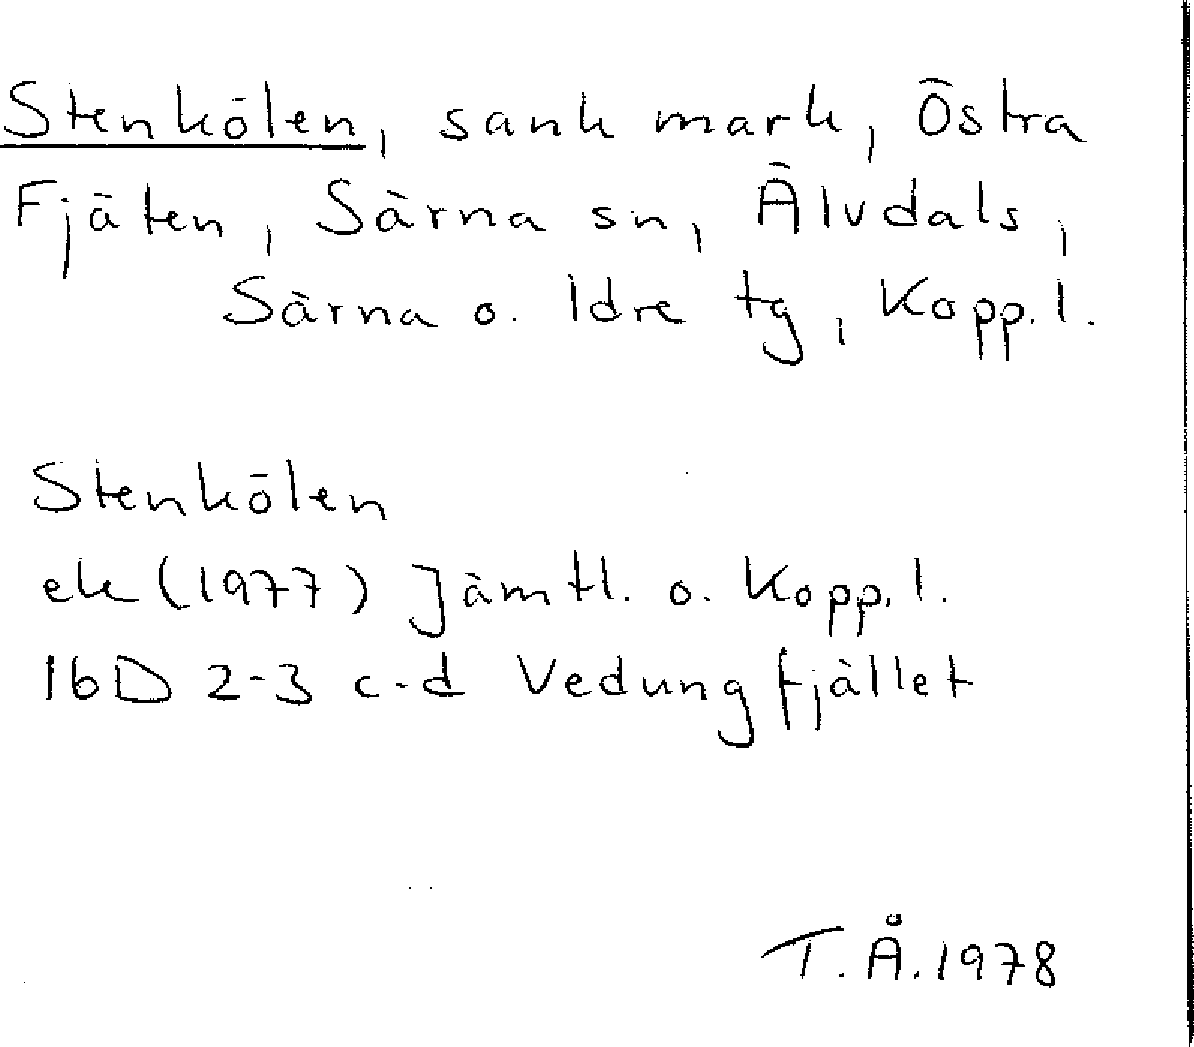 Stenkölen, sank mark, Östra
Fjäten, Särna sn, Älvdals,
Särna o. Idre tg, Kopp. l.
Stenkölen
ek (1977) Jämtl. o. Kopp. l.
16D 2-3 c-d Vedungfjället
T. Å. 1978